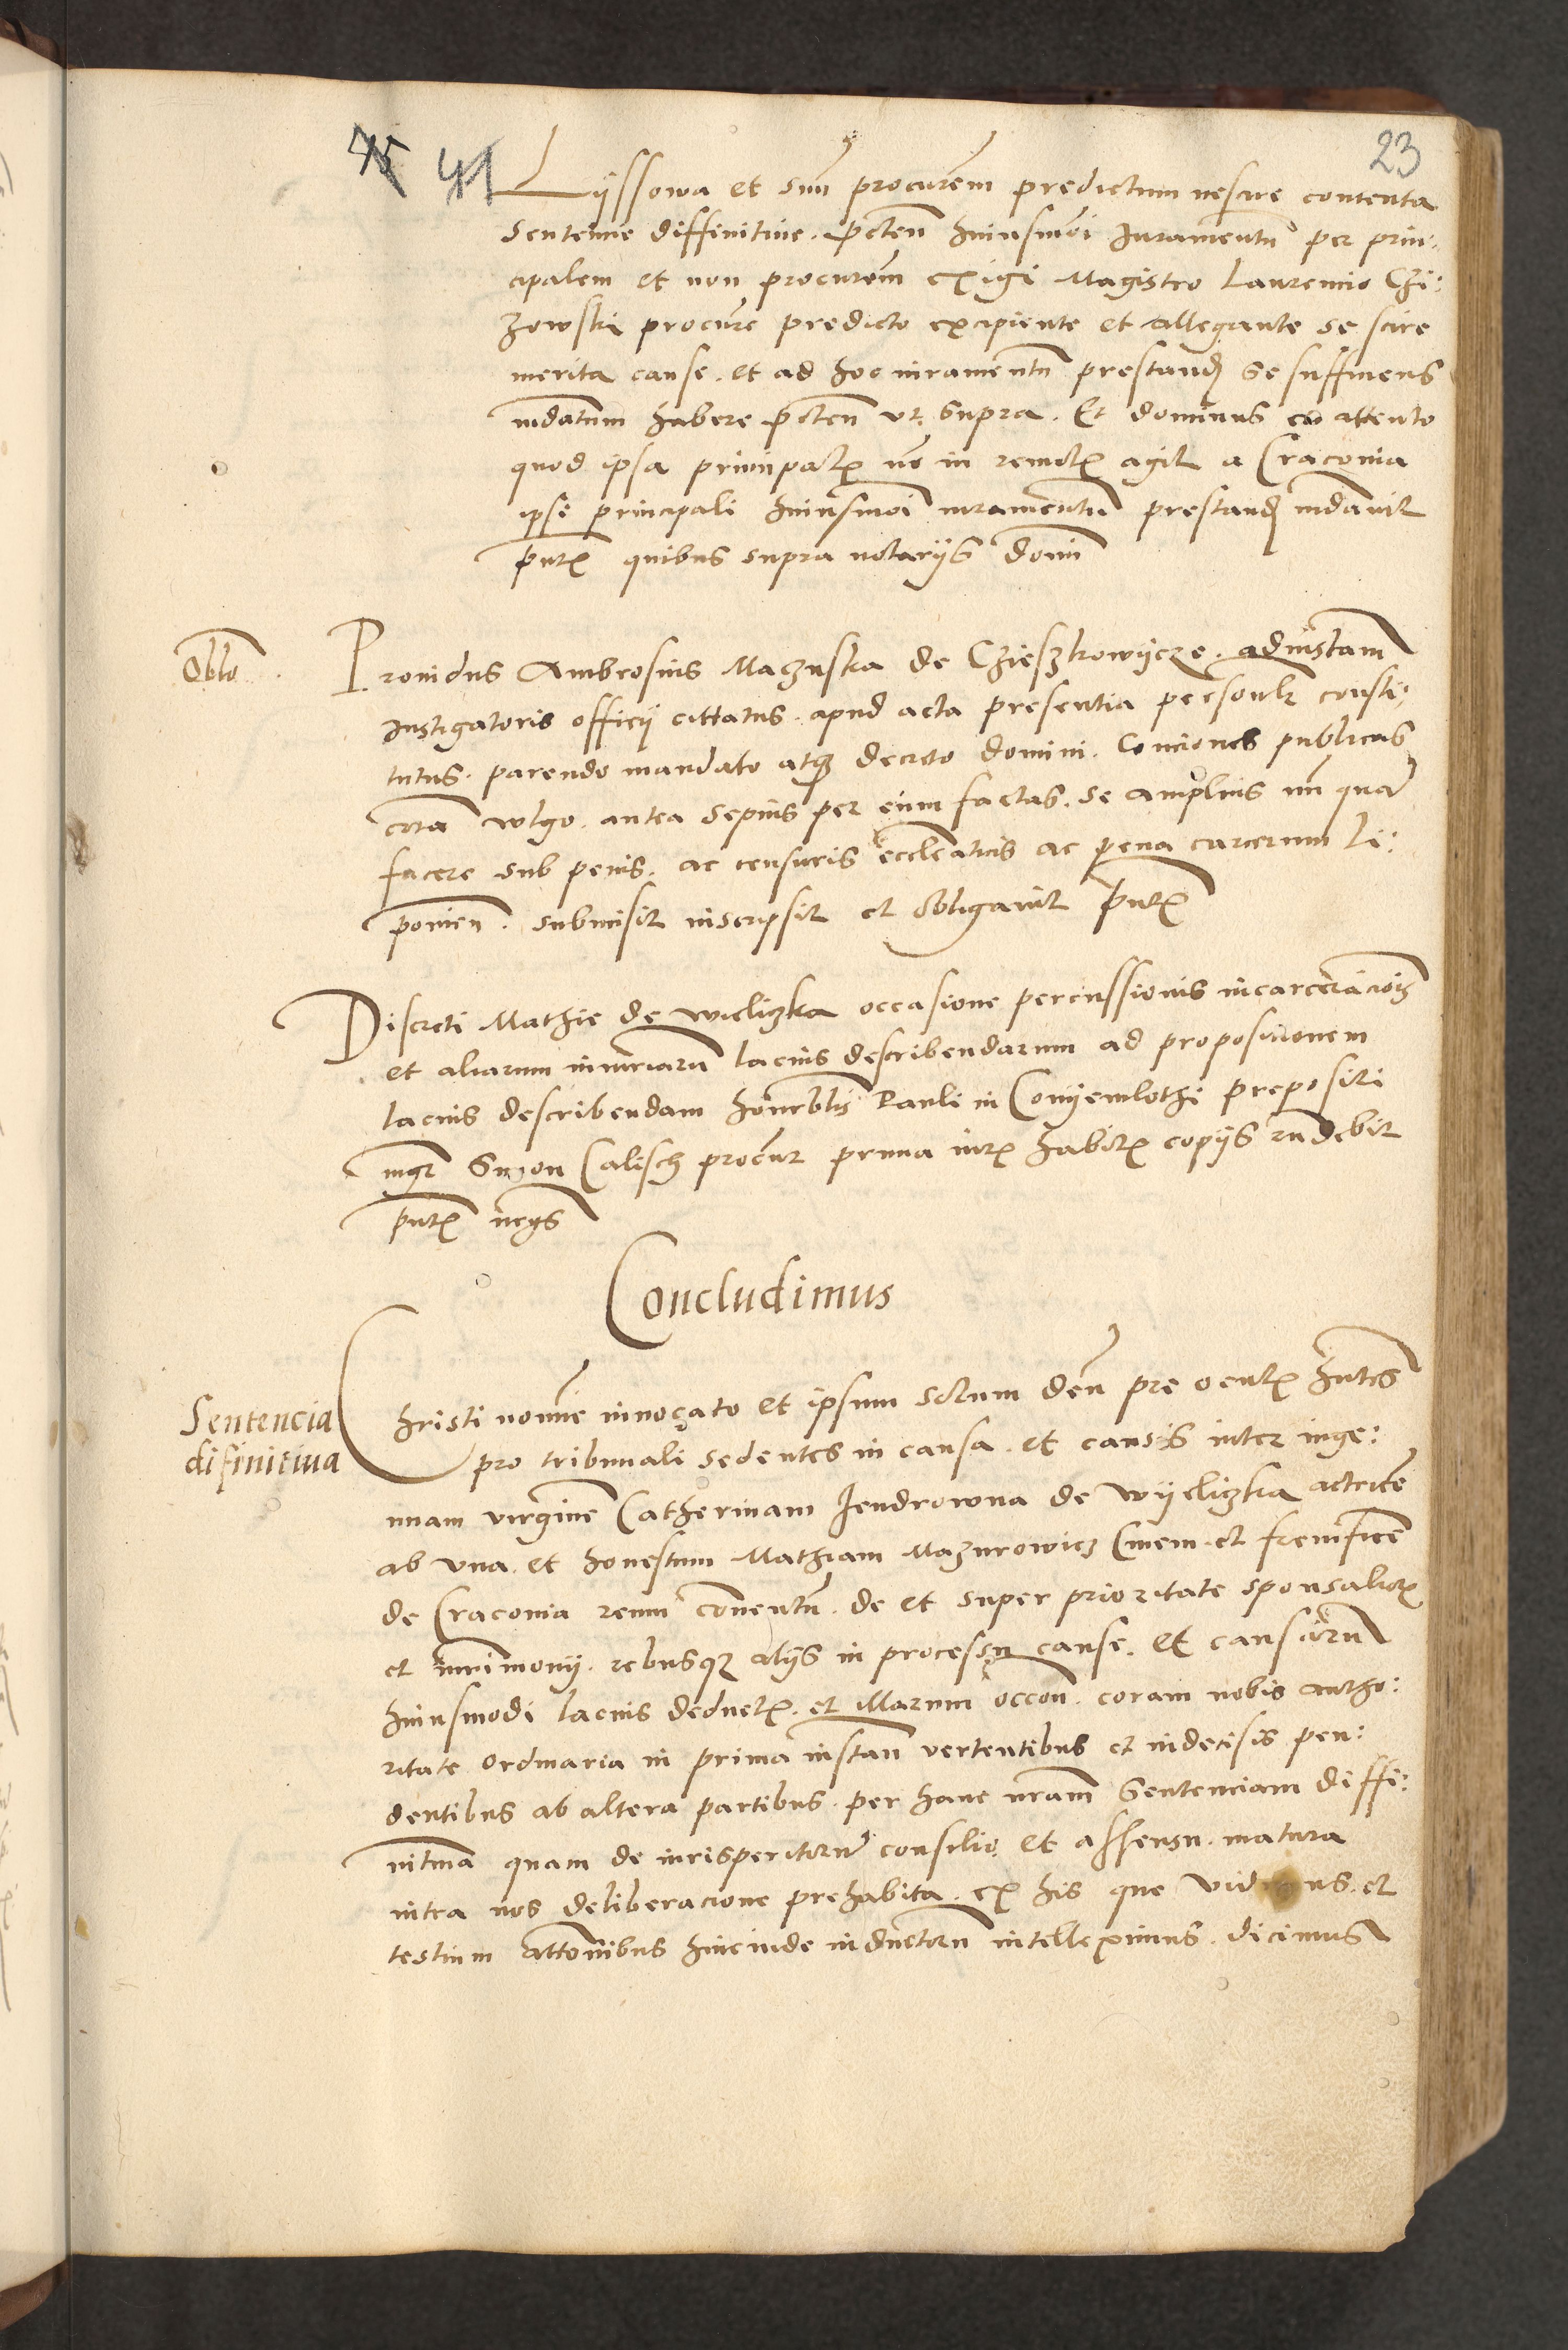 23
41
Lyssowa et suu procurem predictum nescire contenta
sentencie diffinitive. ptten huiusmoi Iuramentu per prin:
cipalem et non procurem exigi Magistro Laurencio Chi:
zowski procure predicto excipiente et allegante se scire
merita cause. et ad hoc iuramentu prestand se sufficiens
mdatum habere ptten vt supra. Et dominus eo attento
quod ipsa principalis no in remotis agit a Cracouia
ipsi principali huiusmoi iuramentu prestand mdauit
pntx quibus supra notarijs domi
Oblo
Prouidus Ambrosius Maczuska de Czieszkowycze. ad instam
instigatoris officij cittatus. apud acta presentia personlr consti:
tutus. parendo mandato atqz decreto domini. Conciones publicas
cora wlgo. antea sepius per eum factas. se amplius nu quam
facere sub penis. ac censuris eccleaticis ac pena carcerum li:
ponien. submisit inscripsit et obligauit pntx
Discreti Mathie de wieliczka occasione percussionis incarceracois
et aliarum iniuriaru lacius describendarum ad proposicionem
lacius describendam honrblis Pauli in Conyemlothi prepositi
mgr Simon Calisch procur prima iurx habitx copijs rndebit
pntx ncgs
Concludimus
Sentencia
difinitiua
Christi nomine inuocato et ipsum solum deu pre oculx hntes
pro tribunali sedentes in causa. et causis inter inge:
nuam virgine Catherinam Jendrowna de Wyeliczka actrice
ab vna. et honestum Mathiam Mazurowicz Ciuem. et frenifice
de Cracouia reum conuentu. de et super prioritate sponsaliorx
et mrimonij. rebusqz alijs in processu cause. et causaru
huiusmodi lacius deductx. et illarum occon. coram nobis autho:
ritate ordinaria in prima instan vertentibus et indecisis pen:
dentibus ab altera partibus. per hanc nram Sentenciam diffi:
nitiua quam de iurisperitoru consilio et assensu. matura
intra nos deliberacione prehabita. ex his que vidimus. et
testium attonibus hincinde inductoru intelleximus. dicimus